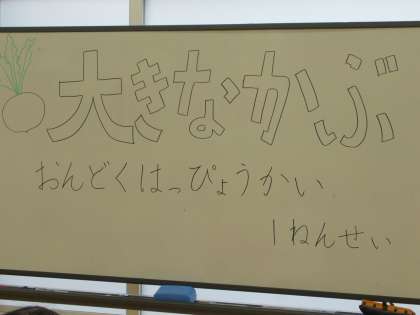 大きなかぶ
おんどくはっぴょうかい
1ねんせい